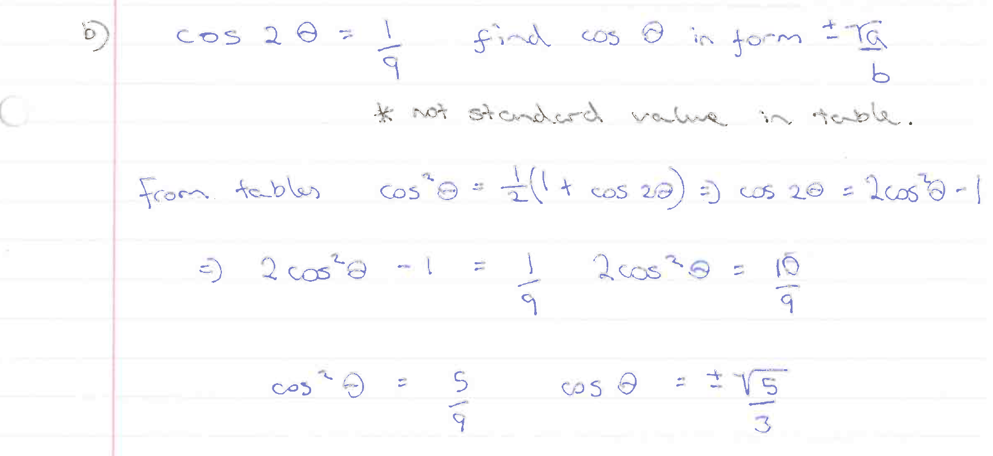 b) cos 2θ = 1/9 find cos θ in form ±√a/b
* not standard value in table.
From tables cos²θ = 1/2(1 + cos 2θ) ⇒ cos 2θ = 2cos²θ - 1
⇒ 2cos²θ - 1 = 1/9 2cos²θ = 10/9
cos²θ = 5/9 cos θ = ±√5/3